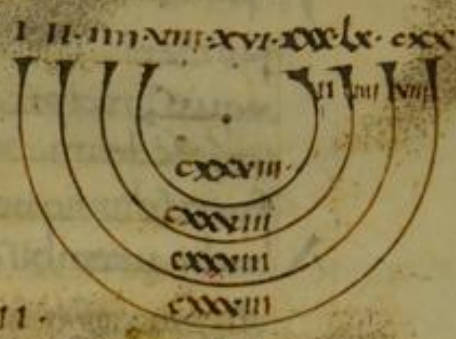 I II· IIII· VIII· XVI· XXX· LX· CXX
II IIII VIII
CXXXVIII·
CXXXVIII
CXXXVIII
CXXXVIII
II·